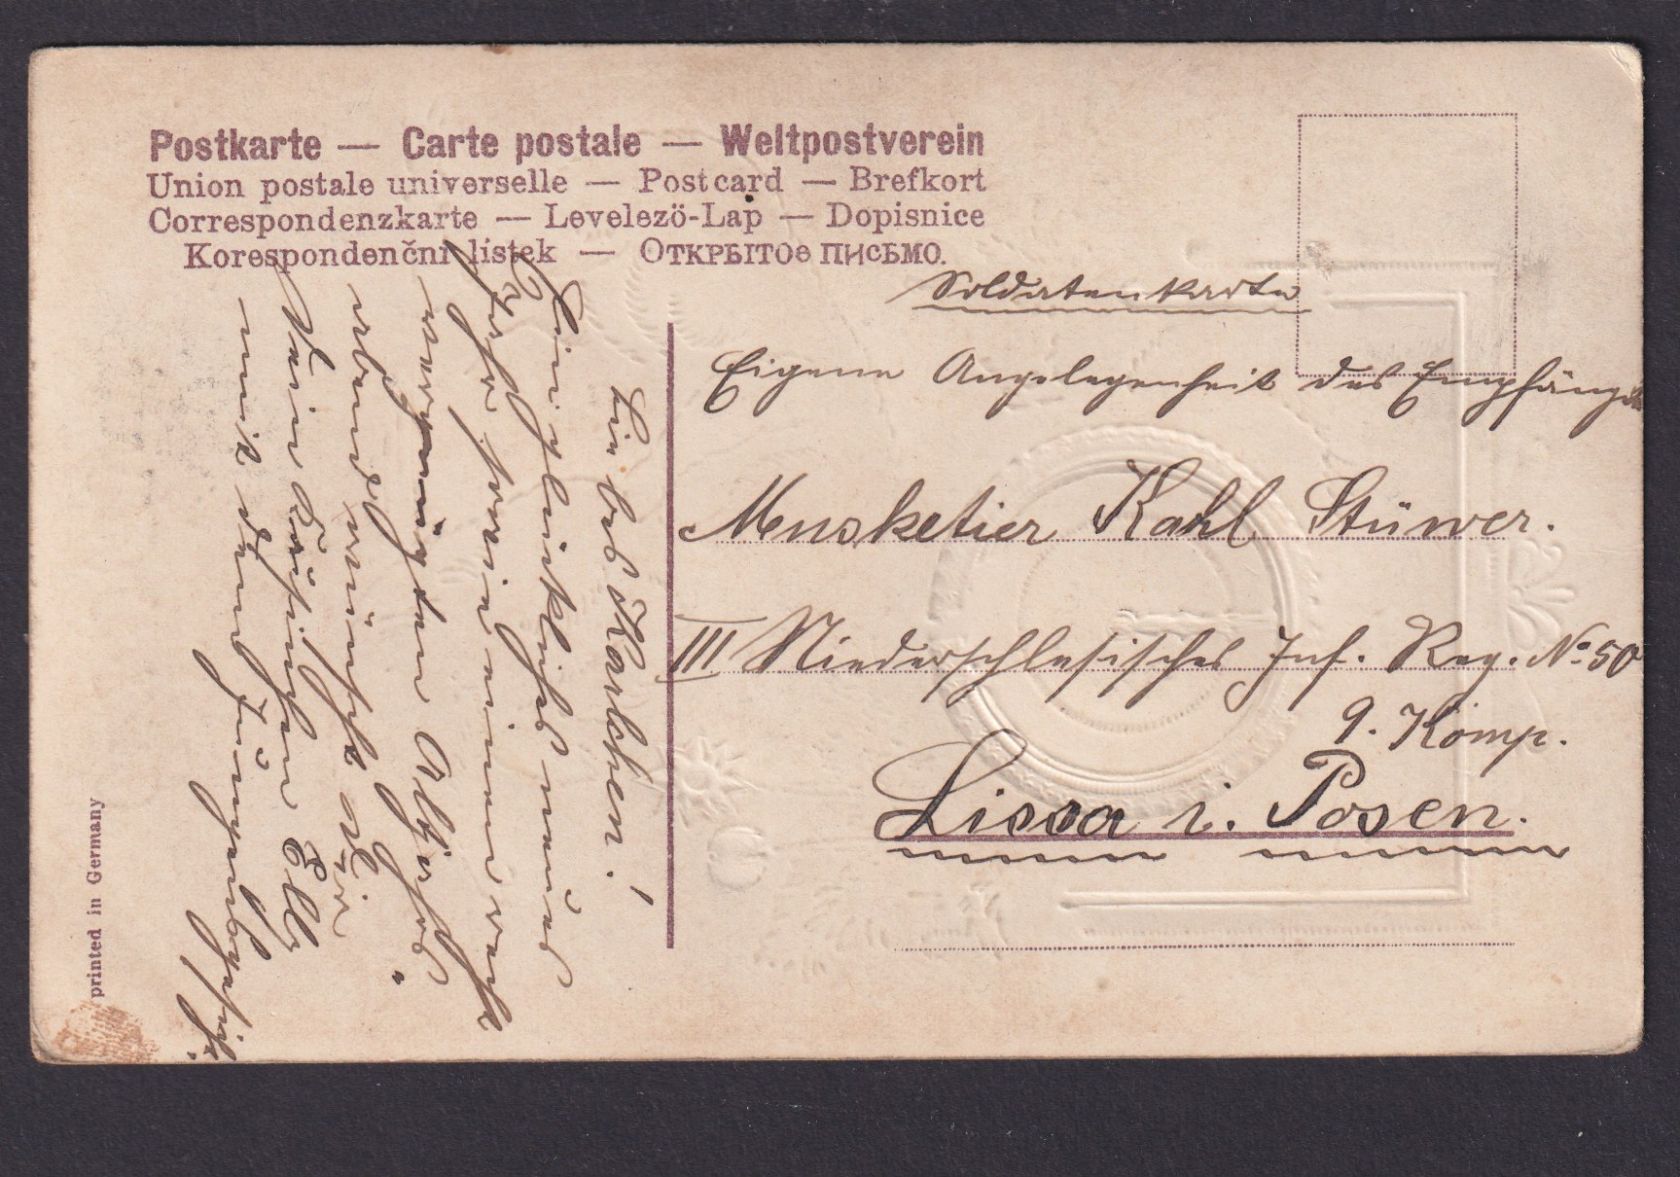 Postkarte — Carte postale — Weltpostverein
Union postale universelle — Postcard — Brefkort
Correspondenzkarte — Levelezö-Lap — Dopisnice
Korespondenční lístek — Открытое письмо.
Soldatenkarte
Eigene Angelegenheit des Empfängers
Musketier Karl Stüwer.
III Niederschlesisches Inf. Reg. No 50
9. Komp.
Lissa i. Posen.
Karlchen!
Ein glückliches neues
Jahr sowie einen recht
vergnügten
abend wünscht Dir
Dein
mit
printed in Germany